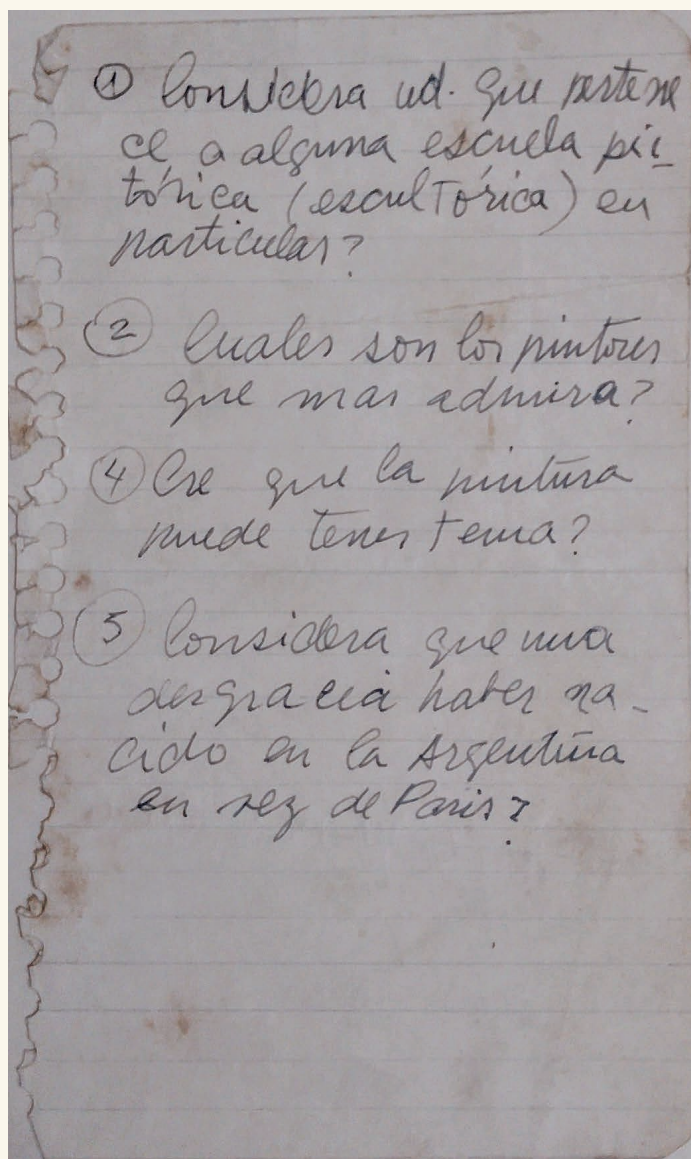 ① Considera ud. que pertene
ce a alguna escuela pic_
tórica (escultórica) en
particular?
② Cuales son los pintores
que mas admira?
④ Cre que la pintura
puede tener tema?
⑤ Considera que una
desgracia haber na_
cido en la Argentina
en vez de Paris?